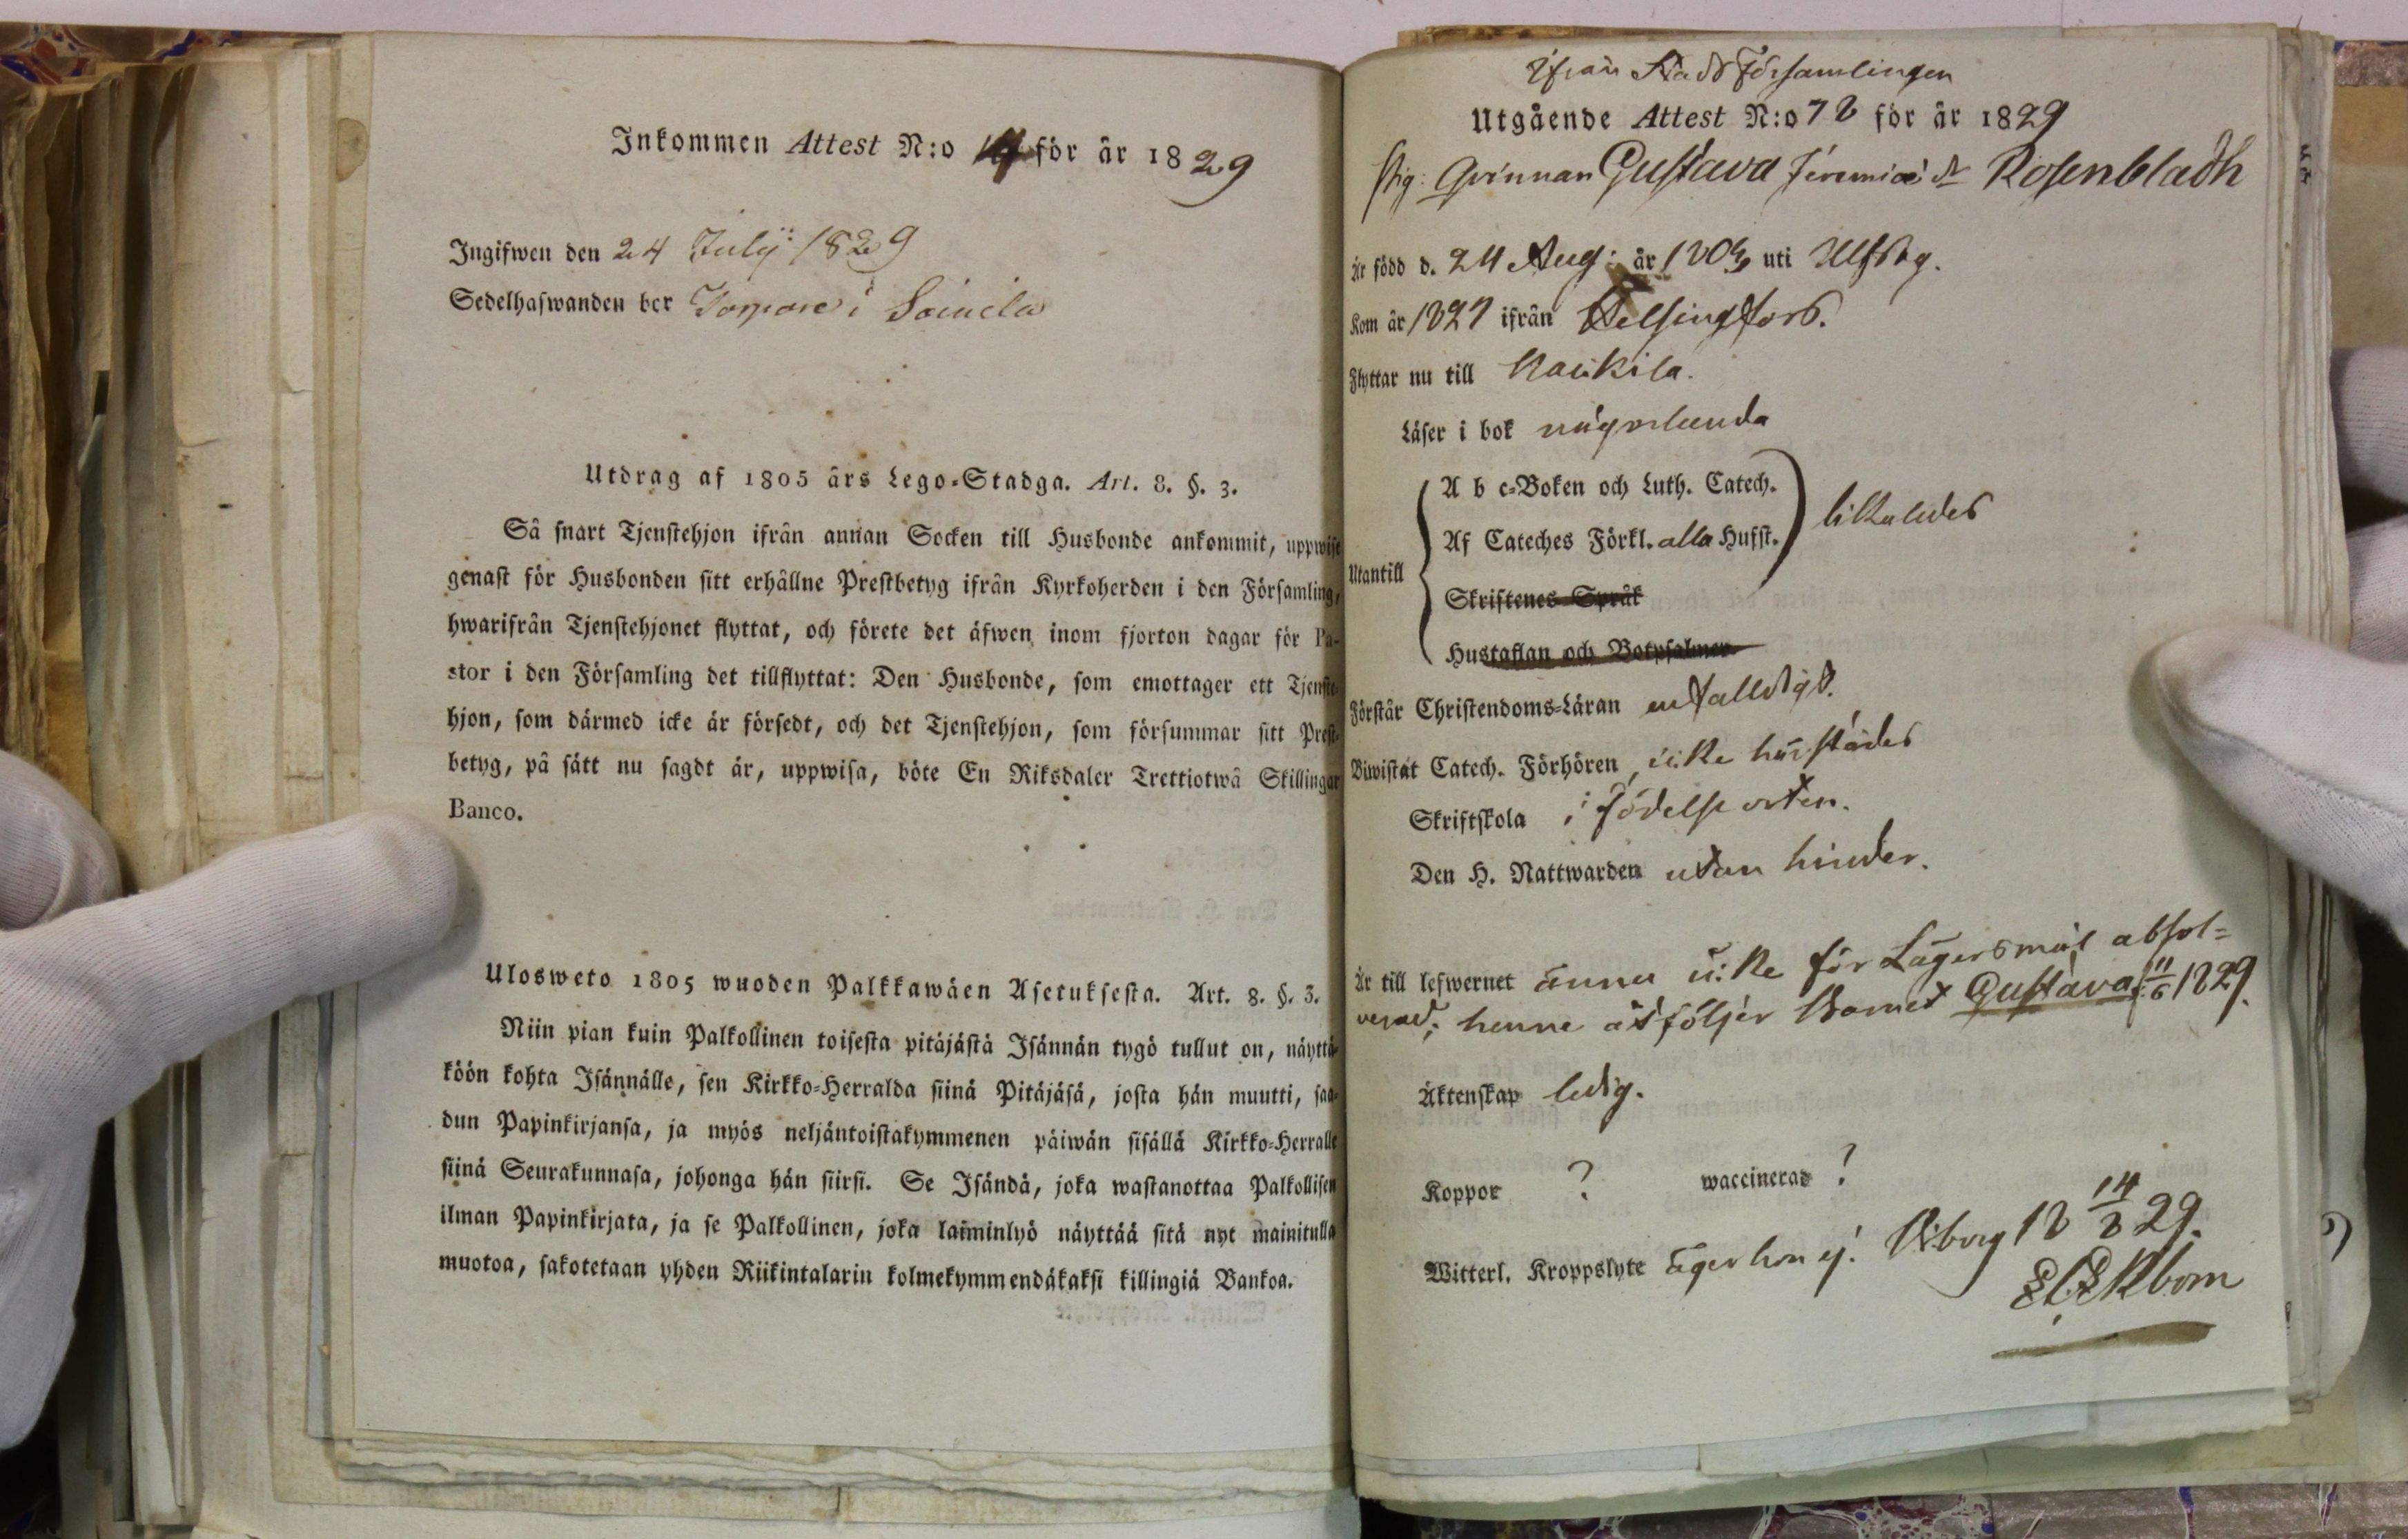 Inkommen Attest N:o 14 för år 1829
Ingifwen den 24 Julii 1829
Sedelhafwanden bor Torpare i
Utdrag af 1805 års Lego-Stadga. Art. 8. §. 3.
Så snart Tjenstehjon ifrån annan Socken till Husbonde ankommit, uppwise
genast för Husbonden sitt erhållne Prestbetyg ifrån Kyrkoherden i den Församling,
hwarifrån Tjenstehjonet flyttat, och förete det äfwen inom fjorton dagar för Pa-
stor i den Församling det tillflyttat: Den Husbonde, som emottager ett Tjenste-
hjon, som därmed icke är försedt, och det Tjenstehjon, som försummar sitt Prest-
betyg, på sätt nu sagdt är, uppwisa, böte En Riksdaler Trettiotwå Skillingar
Banco.
Ulosweto 1805 wuoden Palkkawäen Asetuksesta. Art. 8. §. 3.
Niin pian kuin Palkollinen toisesta pitäjästä Isännän tygö tullut on, näyttä-
köön kohta Isännälle, sen Kirkko-Herralda siinä Pitäjäsä, josta hän muutti, saa-
dun Papinkirjansa, ja myös neljäntoistakymmenen päiwän sisällä Kirkko-Herralle
siinä Seurakunnasa, johonga hän siirsi. Se Isändä, joka wastanottaa Palkollisen
ilman Papinkirjata, ja se Palkollinen, joka laiminlyö näyttää sitä nyt mainitulla
muotoa, sakotetaan yhden Riikintalarin kolmekymmendäkaksi killingiä Bankoa.
Ifrån Stads Församlingen
Utgående Attest N:o 78 för år 1829
Qvinnan Gustava Jeremiæ dr Rosenbladh
Är född d. 24 Aug: år 1803 uti Ulfsby.
Kom år 1827 ifrån Helsingfors.
Flyttar nu till Kaukila.
Läser i bok någorlunda
A b c-Boken och Luth. Catech.
Af Cateches Förkl. alla Hufst. likaledes
Utantill
Skriftenes Språk
Hustaflan och Botpsalmer
Förstår Christendoms-Läran enfalldigt.
Biwistat Catech. Förhören icke härstädes
Skriftskola i födelse orten.
Den H. Nattwarden utan hinder.
Är till lefwernet ännu icke för Lägersmål absol=
verad; henne åtföljer Barnet Gustava f. 11/6 1829.
Äktenskap ledig.
Koppor ? waccinerad ?
Witterl. Kroppslyte äger hon ej. Wiborg 18 14/8 29.
Ekbom